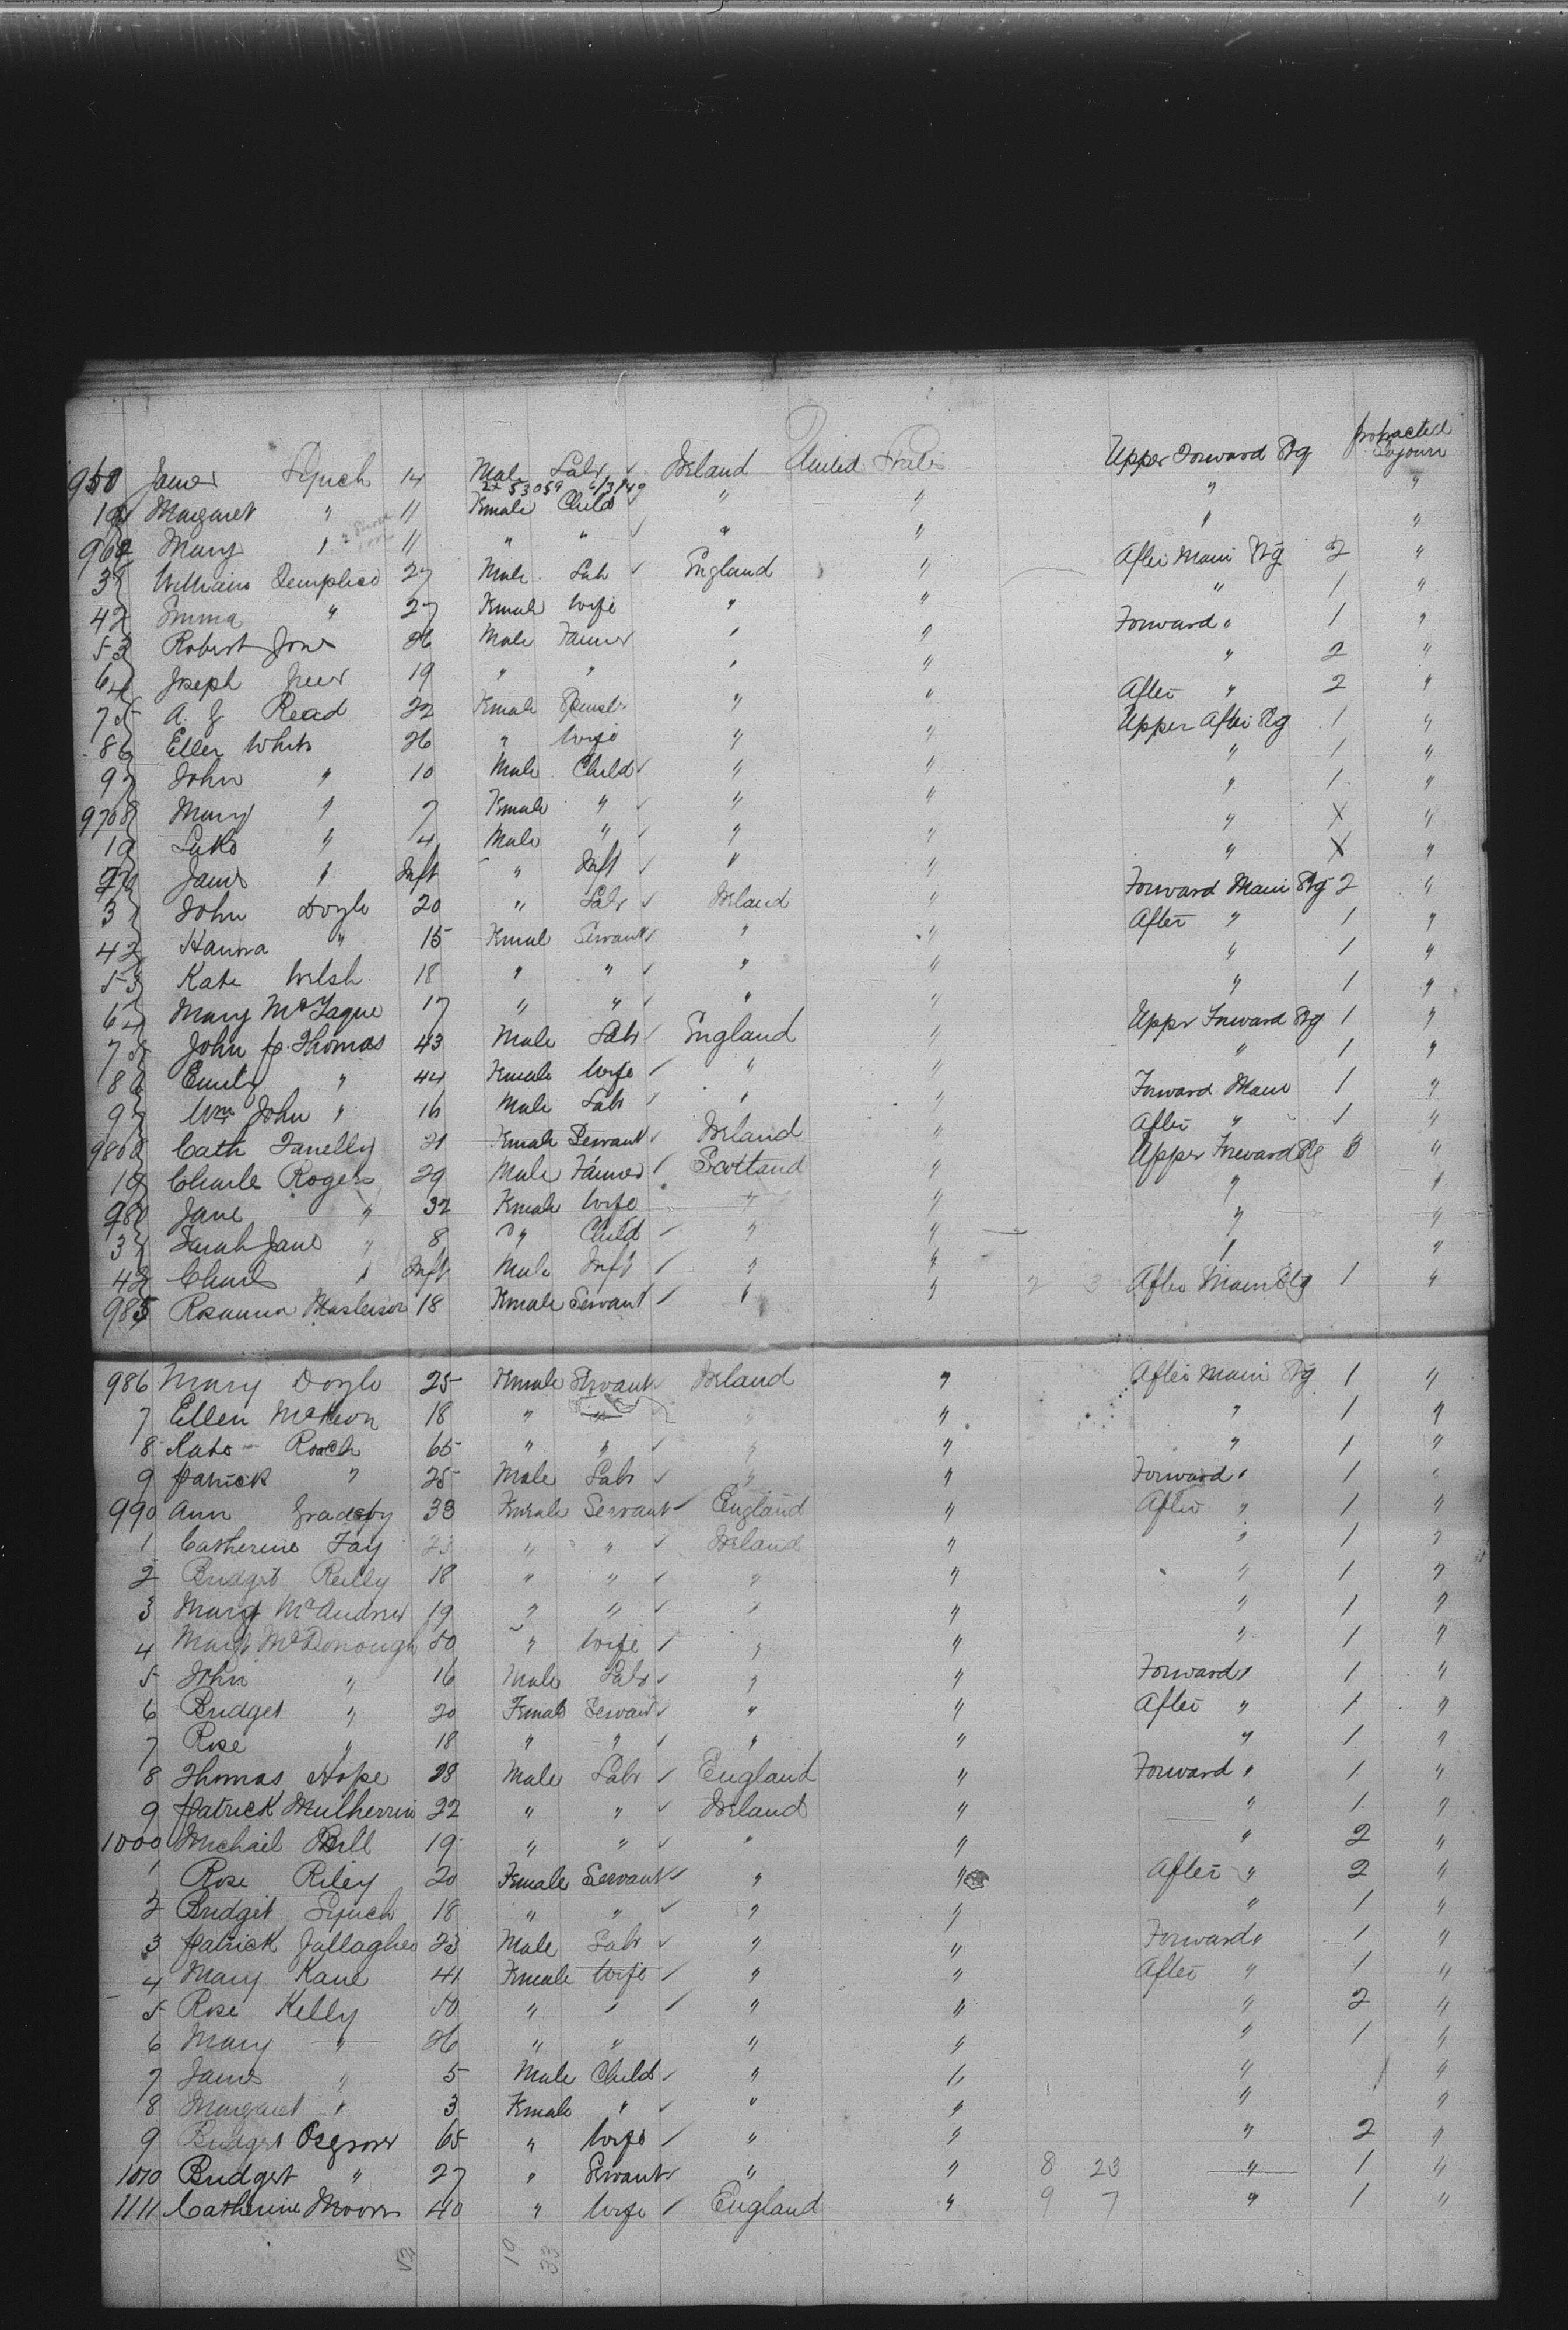 protracted
960 James Lynch 14 Male Labr ✓ Ireland United States Upper Forward Stg Sojourn
2x 53059 6/3/49
1 Margaret " 11 Fmale Child " " " "
962 Mary " 11 " " ✓ " " " "
3 William 27 Male Lab ✓ England " After Main Stg 2 "
4 Emma " 27 Fmale wife " " " 1 "
5 Robert Jones 26 Male Farmer " " Forward " 1 "
6 Joseph 19 " " " " " 2 "
7 A. J Read 22 Fmale Spinstr " " After " 2 "
8 Ellen White 26 " Wife " " Upper After Stg 1 "
9 John " 10 Male Child ✓ " " " 1 "
970 Mary " 7 Fmale " ✓ " " " 1 "
1 Luke " 4 Male " ✓ " " " X "
2 James " Inft " Inft ✓ " " " X "
3 John Doyle 20 " Labr ✓ Ireland " Forward Main Stg 2 "
4 Hanna " 15 Fmal Servant ✓ " " After " 1 "
5 Kate Welsh 18 " " ✓ " " " 1 "
6 Mary McTague 17 " " ✓ " " " 1 "
7 John Thomas 43 Male Labr ✓ England " Uppr Forward Stg 1 "
8 Emily " 44 Fmale Wife ✓ " " " 1 "
9 Wm John " 16 Male Labr ✓ " " Forward Main 1 "
980 Cath Fanelly 21 Fmale Servant ✓ Ireland " After " 1 "
1 Charles Rogers 29 Male Farmer ✓ Scotland " Upper Forward Stg "
2 Jane " 32 Fmale Wife " " " "
3 Sarah Jane " 8 " Child ✓ " " " "
4 Charles " Inft Male Inft ✓ " " " "
985 Rosanna Masterson 18 Fmale Servant ✓ " " 2 3 After Main Stg 1 "
986 Mary Doyle 25 Fmale Servant Ireland " After Main Stg 1 "
7 Ellen McKeon 18 " " " " " 1 "
8 Kate Roach 65 " " ✓ " " " 1 "
9 Patrick " 25 Male Labr ✓ " " Forward " 1 "
990 Ann 33 Fmale Servant ✓ England " After " 1 "
1 Catherine Fay 23 " " ✓ Ireland " " 1 "
2 Bridget Reilly 18 " " ✓ " " " 1 "
3 Mary McAndrew 19 " " ✓ " " " 1 "
4 Mary McDonough 50 " wife ✓ " " " 1 "
5 John " 16 Male Labr ✓ " " Forward " 1 "
6 Bridget " 20 Female Servant ✓ " " After " 1 "
7 Rose " 18 " " ✓ " " " 1 "
8 Thomas Hope 28 Male Labr ✓ England " Forward " 1 "
9 Patrick Mulherrin 22 " " ✓ Ireland " " 1 "
1000 Michail Bell 19 " " ✓ " " " 2 "
1 Rose Riley 20 Female Servant ✓ " " After " 2 "
2 Bridget Lynch 18 " " ✓ " " " 1 "
3 Patrick Gallagher 23 Male Labr ✓ " " Forward " 1 "
4 Mary Kane 41 Female Wife ✓ " " After " 1 "
5 Rose Kelly 50 " " ✓ " " " 2 "
6 Mary " 26 " " " " " 1 "
7 James " 5 Male Child ✓ " " " "
8 Margaret " 3 Fmale " ✓ " " " "
9 Bridget Osgrover 65 " Wife ✓ " " " 2 "
1010 Bridget " 27 " Servant ✓ " " 8 23 " 1 "
1111 Catherine Moore 40 " Wife ✓ England " 9 7 " 1 "
52 19 33